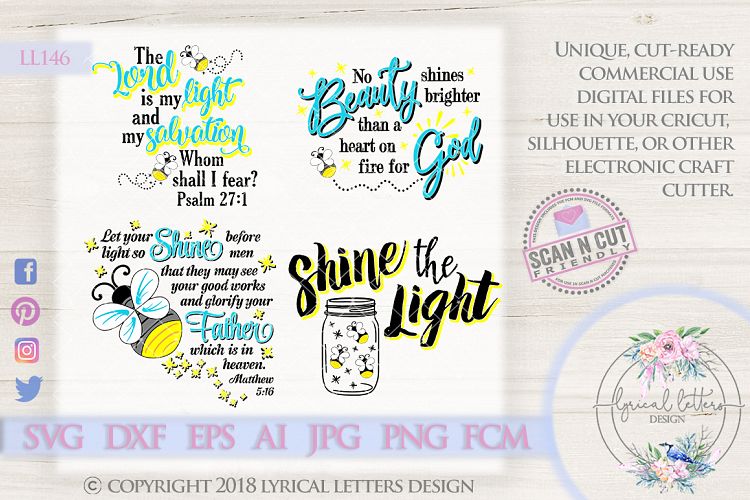 LL146
The
Lord
is my light
and
my salvation
Whom
shall I fear?
Psalm 27:1
No
Beauty shines
brighter
than a
heart on
fire for
God
Let your Shine before
light so men
that they may see
your good works
and glorify your
Father
which is in
heaven.
Matthew
5:16
Shine the
Light
Unique, cut-ready
commercial use
digital files for
use in your Cricut,
Silhouette, or other
electronic craft
cutter.
SCAN N CUT
FRIENDLY
lyrical letters
DESIGN
SVG DXF EPS AI JPG PNG FCM
© COPYRIGHT 2018 LYRICAL LETTERS DESIGN